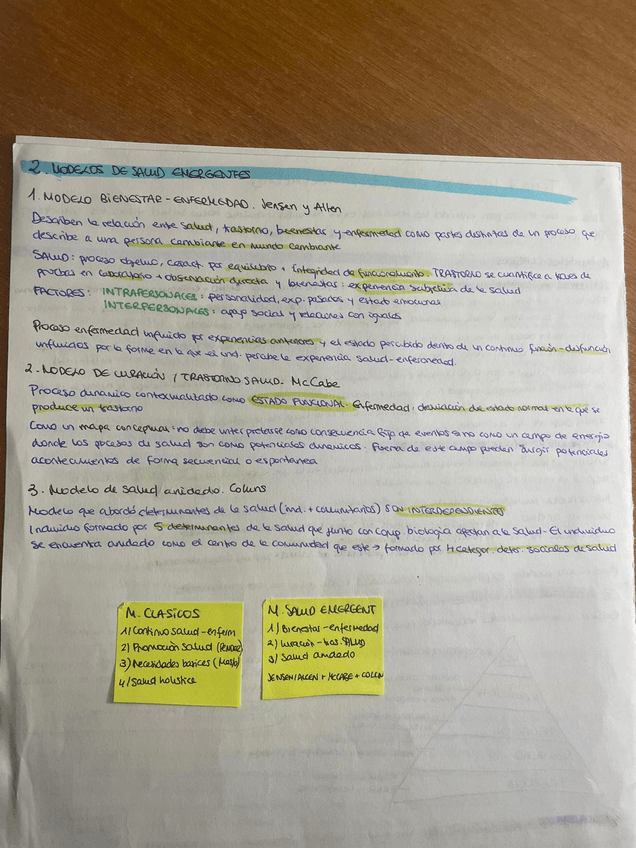 2. MODELOS DE SALUD EMERGENTES
1. MODELO BIENESTAR-ENFERMEDAD. Jensen y Allen
Describen la relación entre salud, trastorno, bienestar y enfermedad como partes distintas de un proceso que
describe a una persona cambiante en mundo cambiante
SALUD: proceso objetivo, caract. por equilibrio + integridad de funcionamiento. TRASTORNO se cuantifica a través de
pruebas en laboratorio + observación directa y bienestar: experiencia subjetiva de la salud
FACTORES: INTRAPERSONALES: personalidad, exp. pasadas y estado emocional
INTERPERSONALES: apoyo social y relaciones con iguales
Proceso enfermedad influido por experiencias anteriores y el estado percibido dentro de un continuo función-disfunción
influidos por la forma en la que el ind. percibe la experiencia salud-enfermedad.
2. MODELO DE CURACIÓN / TRASTORNO SALUD. McCabe
Proceso dinámico contextualizado como ESTADO FUNCIONAL. Enfermedad: desviación de estado normal en le q se
produce un trastorno
Como un mapa conceptual: no debe interpretarse como consecuencia fija de eventos sino como un campo de energía
donde los procesos de salud son como potenciales dinámicos. Fuera de este campo pueden surgir potenciales
acontecimientos de forma secuencial o espontánea
3. Modelo de salud anidado. Colins
Modelo que abordó determinantes de la salud (ind. + comunitarios) SON INTERDEPENDIENTES
Individuo formado por 5 determinantes de la salud que junto con comp. biología afectan a la salud. El individuo
se encuentra anidado como el centro de la comunidad que este → formado por 4 categor. deter. sociales de salud
M. CLASICOS
1) Continuo salud-enferm
2) Promoción Salud (Pender)
3) Necesidades basicas (Maslo)
4) Salud holística
M. SALUD EMERGENT
1) Bienestar-enfermedad
2) Curación-tras. SALUD
3) Salud anidado
JENSEN/ALLEN + McCABE + COLLIN